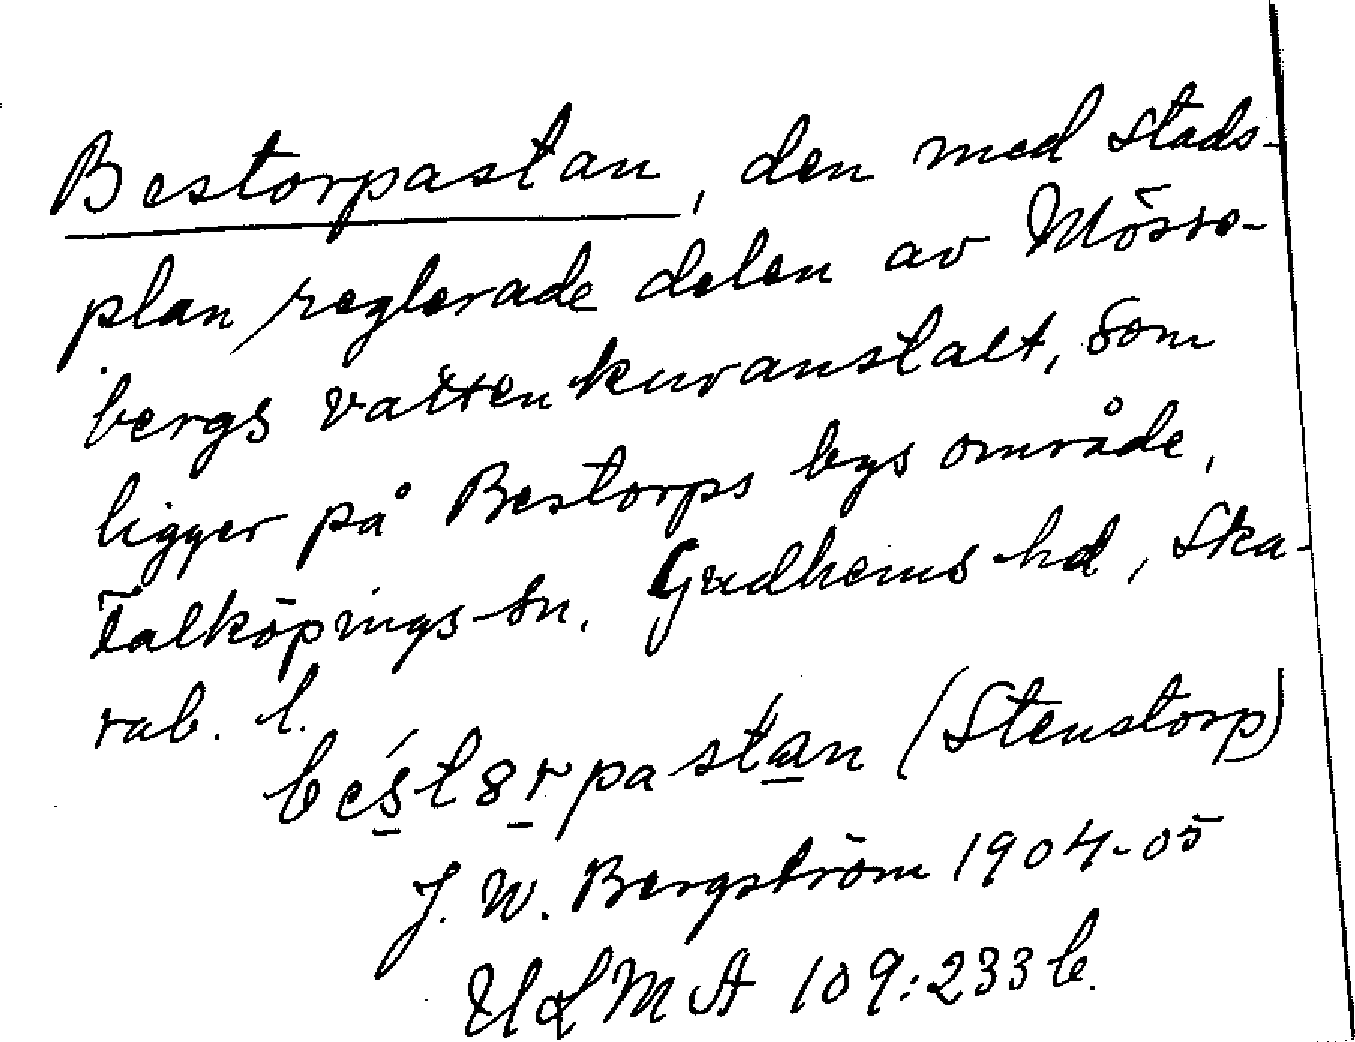 Bestorpastan, den med stads-
plan reglerade delen av Mösse-
bergs vattenkuranstalt, som
ligger på Bestorps bys område,
Falköpings sn. Gudhems hd, Ska-
rab. l.
béstorpastan (Stenstorp)
J. W. Bergström 1904-05
ULMA 109:233 b.